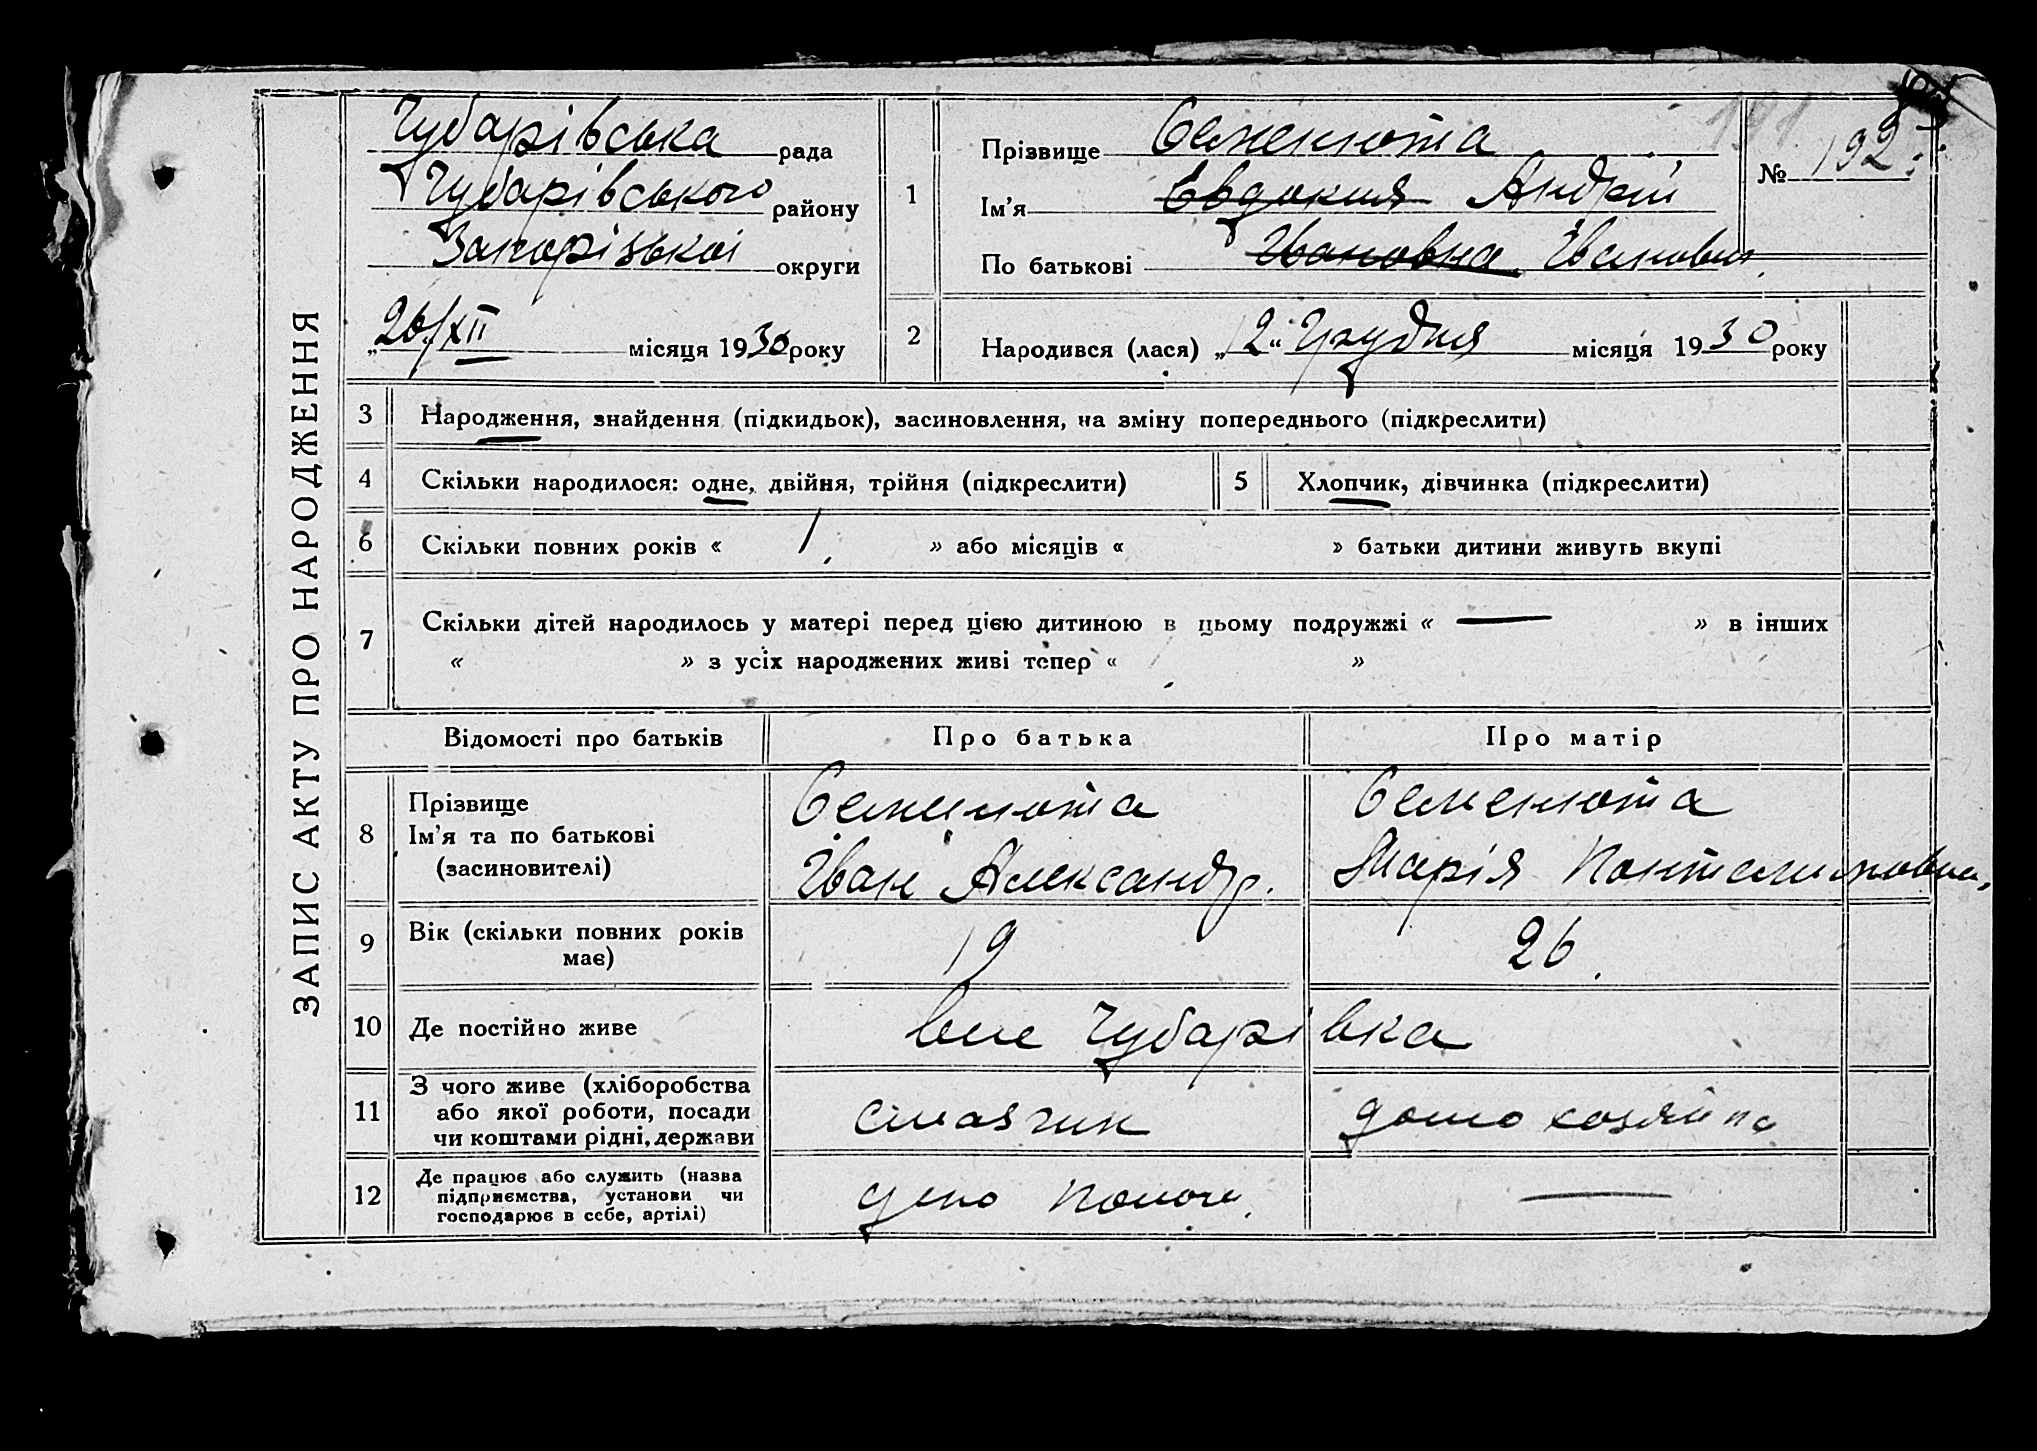 ЗАПИС АКТУ ПРО НАРОДЖЕННЯ
Чубарівська рада
Чубарівського району
Запорізької округи
„26/XII місяця 1930 року
1
Прізвище Семенюта
Ім'я Евдокия Андрій
По батькові Івановна Іванович
191
№ 192
2
Народився (лася) „12“ Грудня місяця 1930 року
3 Народження, знайдення (підкидьок), засиновлення, на зміну попереднього (підкреслити)
4 Скільки народилося: одне, двійня, трійня (підкреслити)
5 Хлопчик, дівчинка (підкреслити)
6 Скільки повних років « 1 » або місяців « » батьки дитини живуть вкупі
7 Скільки дітей народилось у матері перед цією дитиною в цьому подружжі « — » в інших
« » з усіх народжених живі тепер « »
Відомості про батьків Про батька Про матір
8 Прізвище
Ім'я та по батькові
(засиновителі)
Семенюта
Іван Александр.
Семенюта
Марія Понтелимоновна.
9 Вік (скільки повних років
має)
19 26.
10 Де постійно живе
Чубарівка
11 З чого живе (хліборобства
або якої роботи, посади
чи коштами рідні, держави
смазчик домохозяйка
12 Де працює або служить (назва
підприємства, установи чи
господарює в себе, артілі)
депо Пологи. —